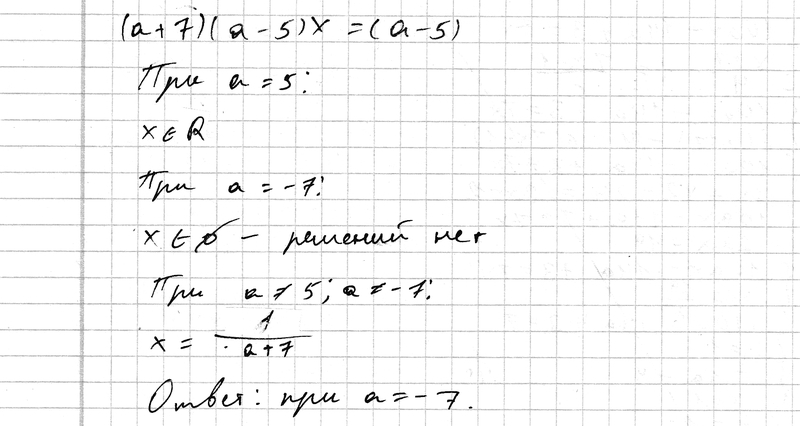 (a+7)(a-5)x = (a-5)
При a = 5:
x ∈ R
При a = -7:
x ∈ ∅ - решений нет
При a ≠ 5; a ≠ -7:
x = 1/(a+7)
Ответ: при a = -7.